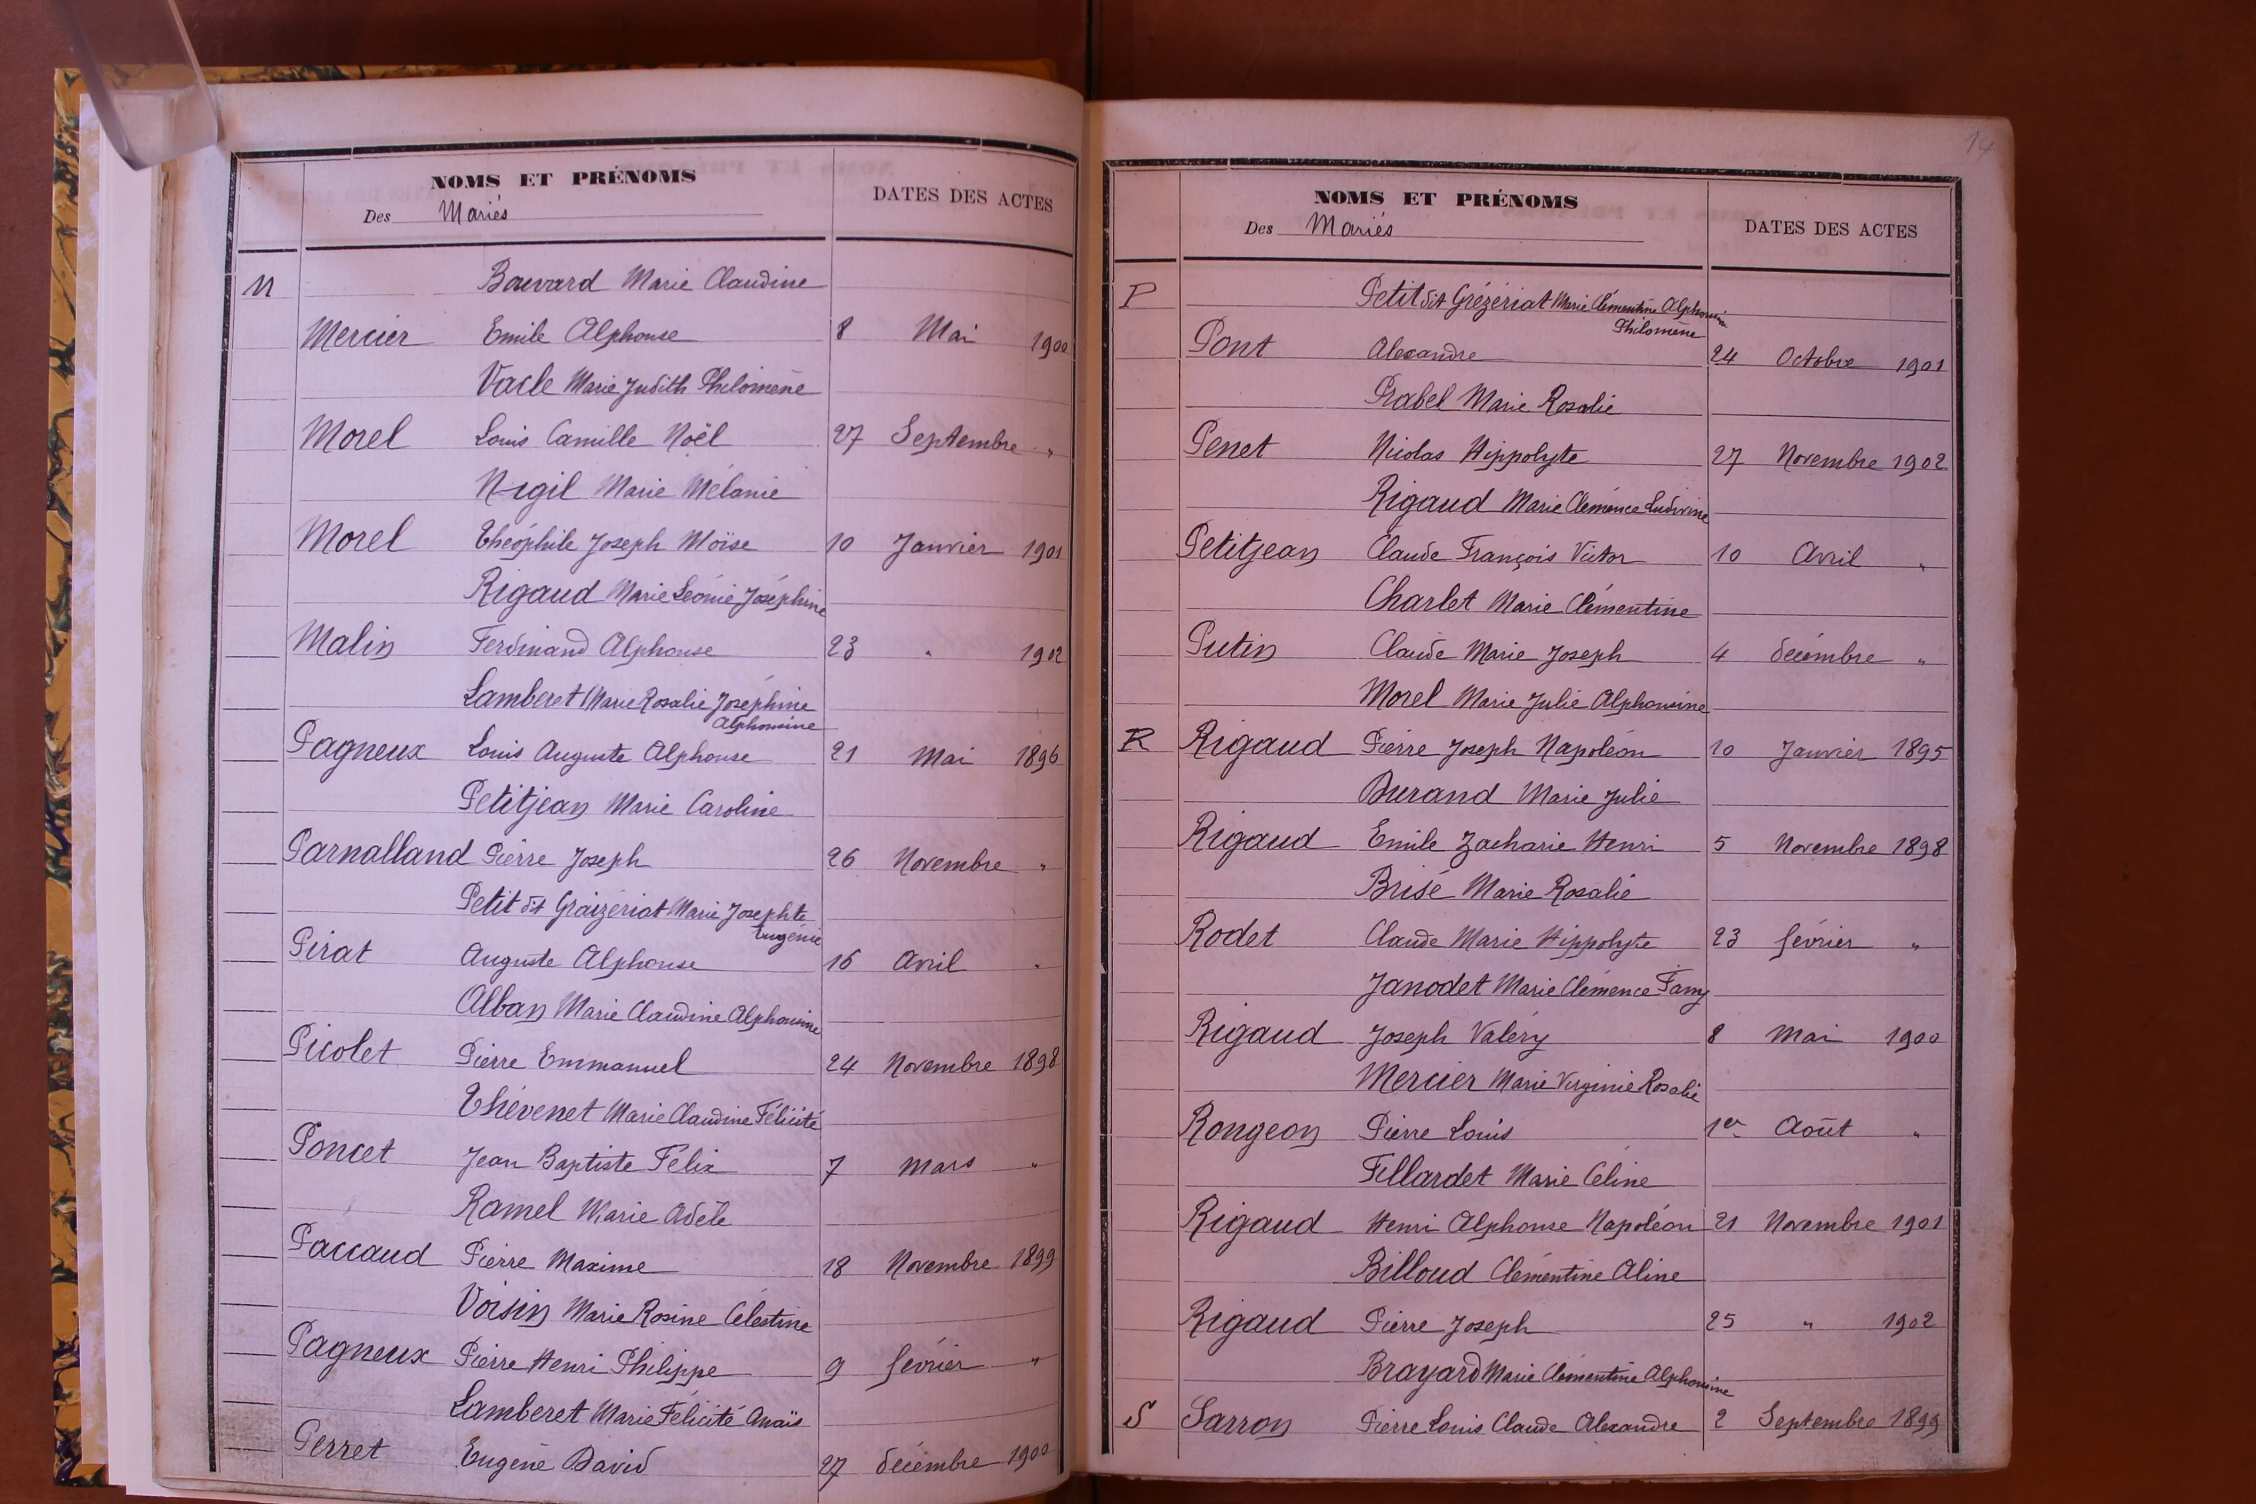 NOMS ET PRÉNOMS
Des Mariés
DATES DES ACTES
M Bouvard Marie Claudine
Mercier Emile Alphonse 8 Mai 1900
Vacle Marie Judith Philomène
Morel Louis Camille Noël 27 Septembre "
Nigil Marie Mélanie
Morel Théophile Joseph Moïse 10 Janvier 1901
Rigaud Marie Léonie Joséphine
Malin Ferdinand Alphonse 23 " 1902
Lamberet Marie Rosalie Joséphine
Alphonsine
Pagneux Louis Auguste Alphonse 21 Mai 1896
Petitjean Marie Caroline
Parnalland Pierre Joseph 26 Novembre "
Petit dit Graizeriat Marie Josephte
Eugénie
Pirat Auguste Alphonse 16 Avril "
Alban Marie Claudine Alphonsine
Picolet Pierre Emmanuel 24 Novembre 1898
Thévenet Marie Claudine Félicité
Poncet Jean Baptiste Félix 7 Mars "
Ramel Marie Adèle
Paccaud Pierre Maxime 18 Novembre 1899
Voisin Marie Rosine Célestine
Pagneux Pierre Henri Philippe 9 février "
Lamberet Marie Félicité Anaïs
Perret Eugène David 27 décembre 1900
14
NOMS ET PRÉNOMS
Des Mariés
DATES DES ACTES
P Petit dit Grézériat Marie Clémentine Alphonsine
Philomène
Pont Alexandre 24 Octobre 1901
Prabel Marie Rosalie
Penet Nicolas Hippolyte 27 Novembre 1902
Rigaud Marie Clémence Ludivine
Petitjean Claude François Victor 10 Avril "
Charlet Marie Clémentine
Putin Claude Marie Joseph 4 décembre "
Morel Marie Julie Alphonsine
R Rigaud Pierre Joseph Napoléon 10 Janvier 1895
Durand Marie Julie
Rigaud Emile Zacharie Henri 5 Novembre 1898
Brisé Marie Rosalie
Rodet Claude Marie Hippolyte 23 février "
Janodet Marie Clémence Fany
Rigaud Joseph Valéry 8 Mai 1900
Mercier Marie Virginie Rosalie
Rongeon Pierre Louis 1er Août "
Fillardet Marie Céline
Rigaud Henri Alphonse Napoléon 21 Novembre 1901
Billoud Clémentine Aline
Rigaud Pierre Joseph 25 " 1902
Brayard Marie Clémentine Alphonsine
S Sarron Pierre Louis Claude Alexandre 2 Septembre 1899